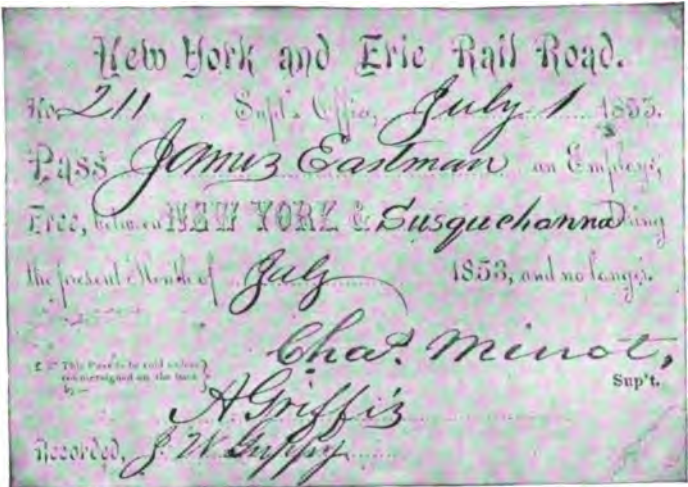 New York and Erie Rail Road.
No. 211 Sup't's Office, July 1 1853.
Pass James Eastman an Employe,
Free, between NEW YORK & Susquehanna during
the present Month of July 1853, and no longer.
Chas. Minot,
Sup't.
This Pass to be void unless
countersigned on the back
by—
A Griffin
Recorded, J. W. Guppy